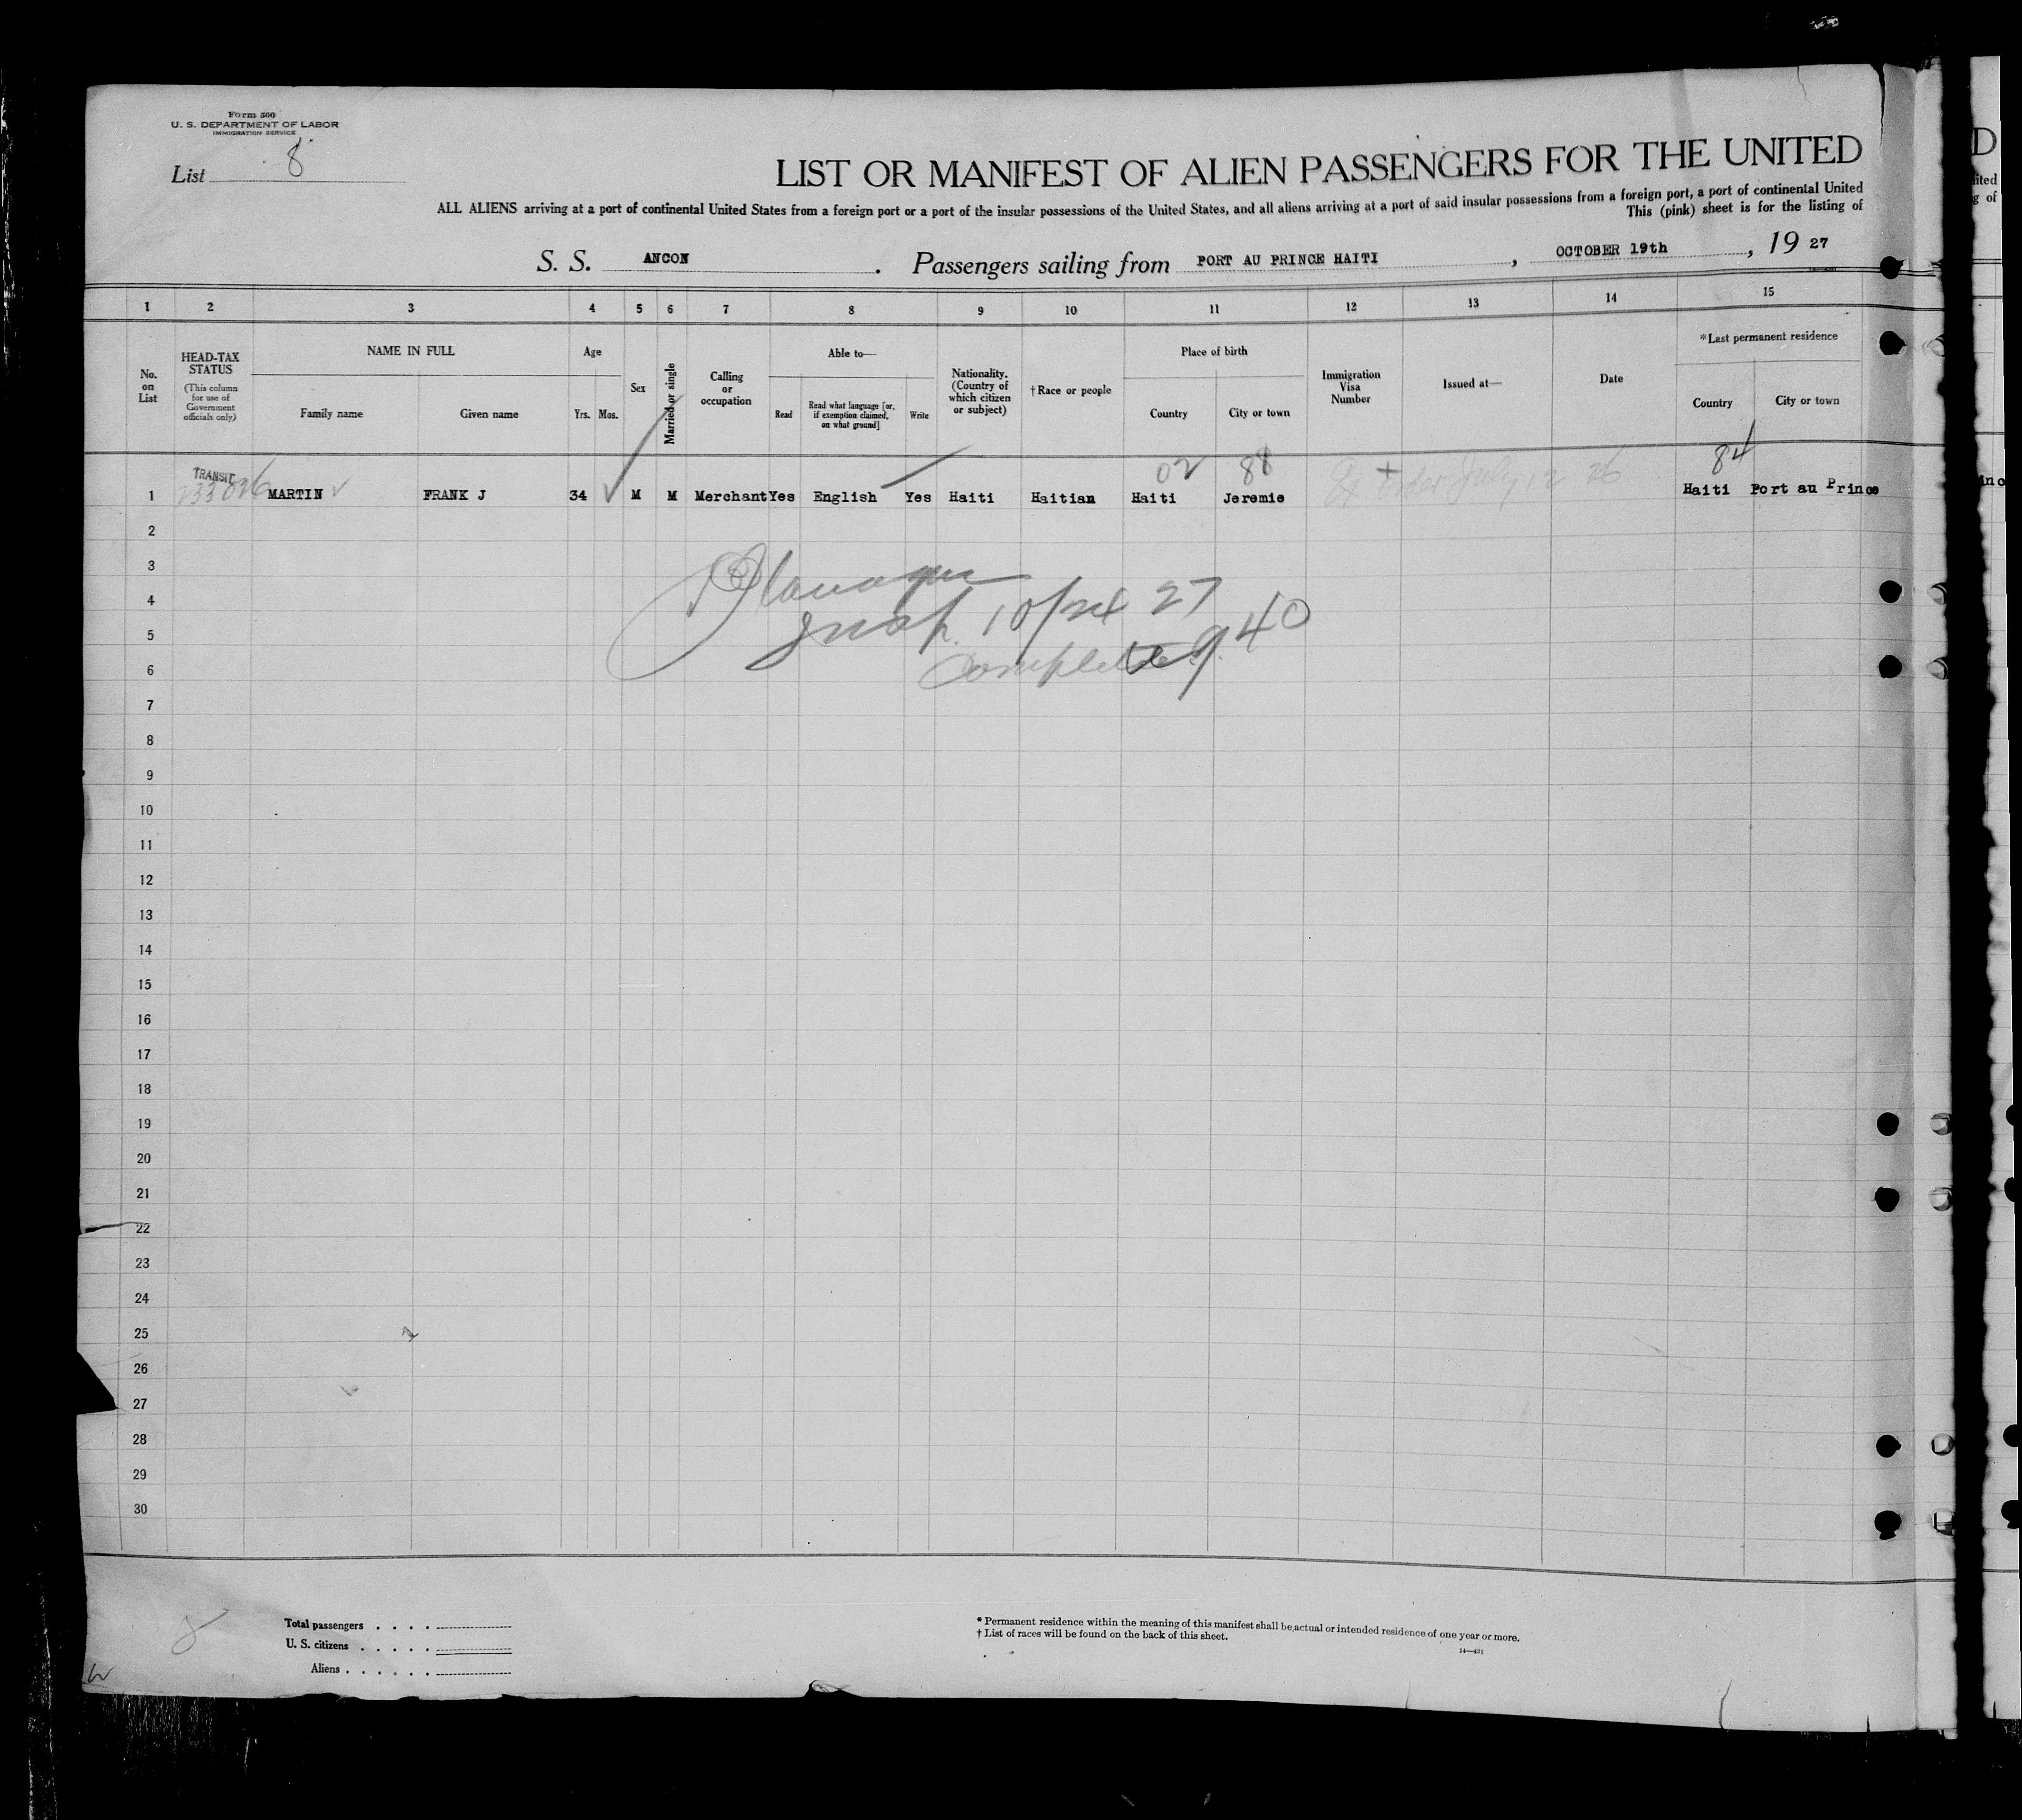 Form 500
U. S. DEPARTMENT OF LABOR
IMMIGRATION SERVICE
List 8
LIST OR MANIFEST OF ALIEN PASSENGERS FOR THE UNITED
ALL ALIENS arriving at a port of continental United States from a foreign port or a port of the insular possessions of the United States, and all aliens arriving at a port of said insular possessions from a foreign port, a port of continental United
This (pink) sheet is for the listing of
S. S. ANCON . Passengers sailing from PORT AU PRINCE HAITI , OCTOBER 19th , 19 27
1 2 3 4 5 6 7 8 9 10 11 12 13 14 15
No. on List
HEAD-TAX STATUS
(This column for use of Government officials only)
NAME IN FULL
Family name Given name
Age
Yrs. Mos.
Sex
Married or single
Calling or occupation
Able to—
Read
Read what language [or, if exemption claimed, on what ground]
Write
Nationality. (Country of which citizen or subject)
†Race or people
Place of birth
Country City or town
Immigration Visa Number
Issued at—
Date
*Last permanent residence
Country City or town
TRANSIT 02 88 84
1 MARTIN FRANK J 34 M M Merchant Yes English Yes Haiti Haitian Haiti Jeremie order July 12 26 Haiti Port au Prince
2
3
4 27
5 9.40
6 Complete
7
8
9
10
11
12
13
14
15
16
17
18
19
20
21
22
23
24
25
26
27
28
29
30
Total passengers . . . .
U. S. citizens . . . . .
Aliens . . . . . .
* Permanent residence within the meaning of this manifest shall be actual or intended residence of one year or more.
† List of races will be found on the back of this sheet.
14—431